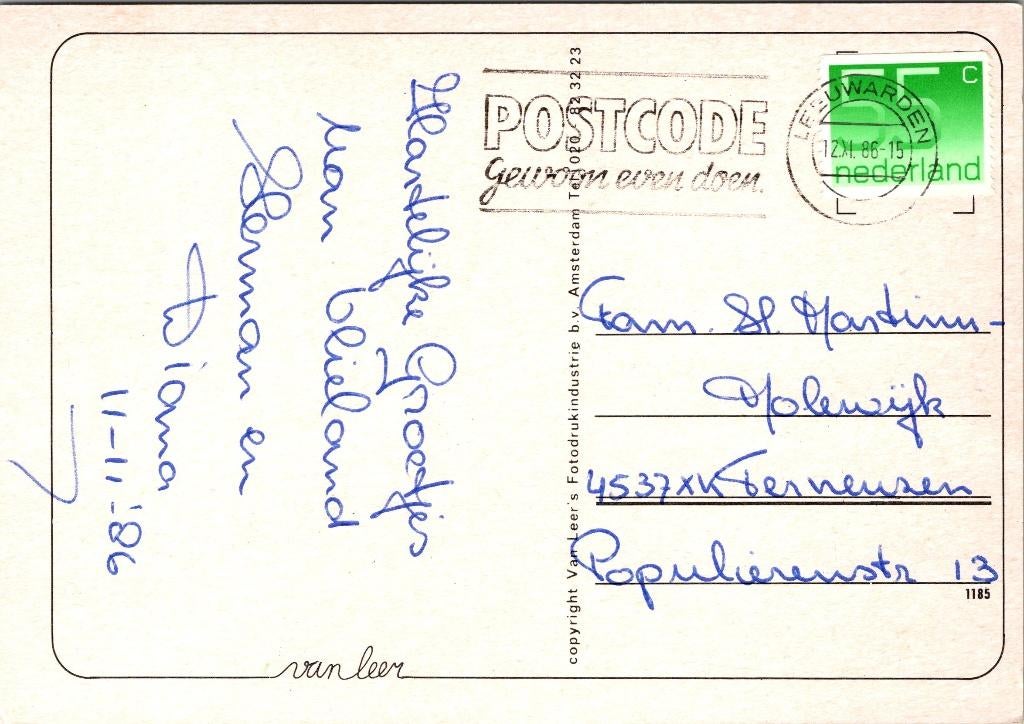 Hartelijke Groetjes
van Vlieland
Herman en
Diana
11-11-'86
POSTCODE
gewoon even doen.
LEEUWARDEN
12.XI. 86-15
55 c
nederland
Fam. St Martinus-
Molewijk
4537XK Terneuzen
Populierenstr 13
1185
copyright Van Leer's Fotodrukindustrie b.v. Amsterdam Tel. 020 - 82 32 23
van leer